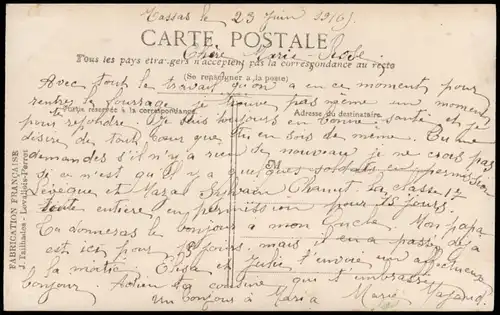 Tassas le 23 Juin 1916.
CARTE POSTALE
Chère Marie-
Tous les pays étrangers n'acceptent pas la correspondance au recto
(Se renseigner à la poste)
Avec tout le travail qu'on a en ce moment pour
rentrer le fourrage je trouve pas même un moment
Partie réservée à la correspondance
Adresse du destinataire
pour te répondre. Je suis toujours en bonne santé et je
désire de tout cœur que tu en sois de même. Tu me
demandes s'il m'y a rien de nouveau je ne crois pas
M
si ce n'est qu'il y a quelques soldats en permission
Lévêque et Mazal Sylvain Chanut la classe 17
toute entière en permission pour 15 jours.
Tu donneras le bonjour à mon Oncle. Mon papa
est ici pour 15 jours, mais il en a passé déjà
la moitié Elisa et Julie t'envoie un affectueux
bonjour Adieu ta cousine qui t'embrasse
Un bonjour à Maria Marie
FABRICATION FRANÇAISE
J. Tailhades - Levallois-Perret